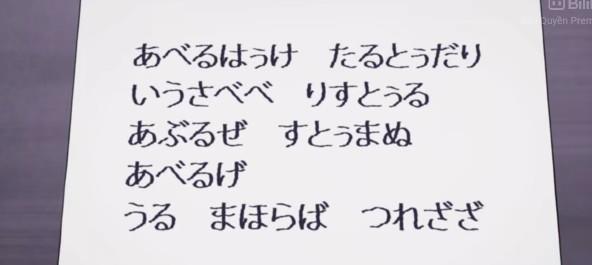 Bili
Quyền Prem
あべるはぅけ　たるとぅだり
いうさべべ　りすとぅる
あぶるぜ　すとぅまぬ
あべるげ
うる　まほらば　つれざざ